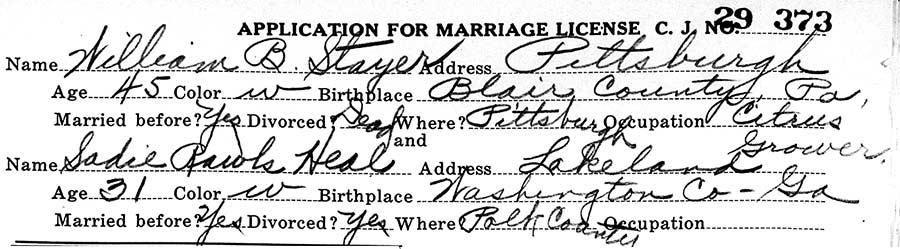 APPLICATION FOR MARRIAGE LICENSE C. J. NO. 29 373
Name William B. Stayer Address Pittsburgh
Age 45 Color w Birthplace Blair County, Pa,
Married before? Yes Divorced? Dead Where? Pittsburgh Occupation Citrus Grower.
and
Name Sadie Rawls Heal Address Lakeland
Age 31 Color w Birthplace Washington Co - Ga
Married before? Yes Divorced? Yes Where Polk County Occupation